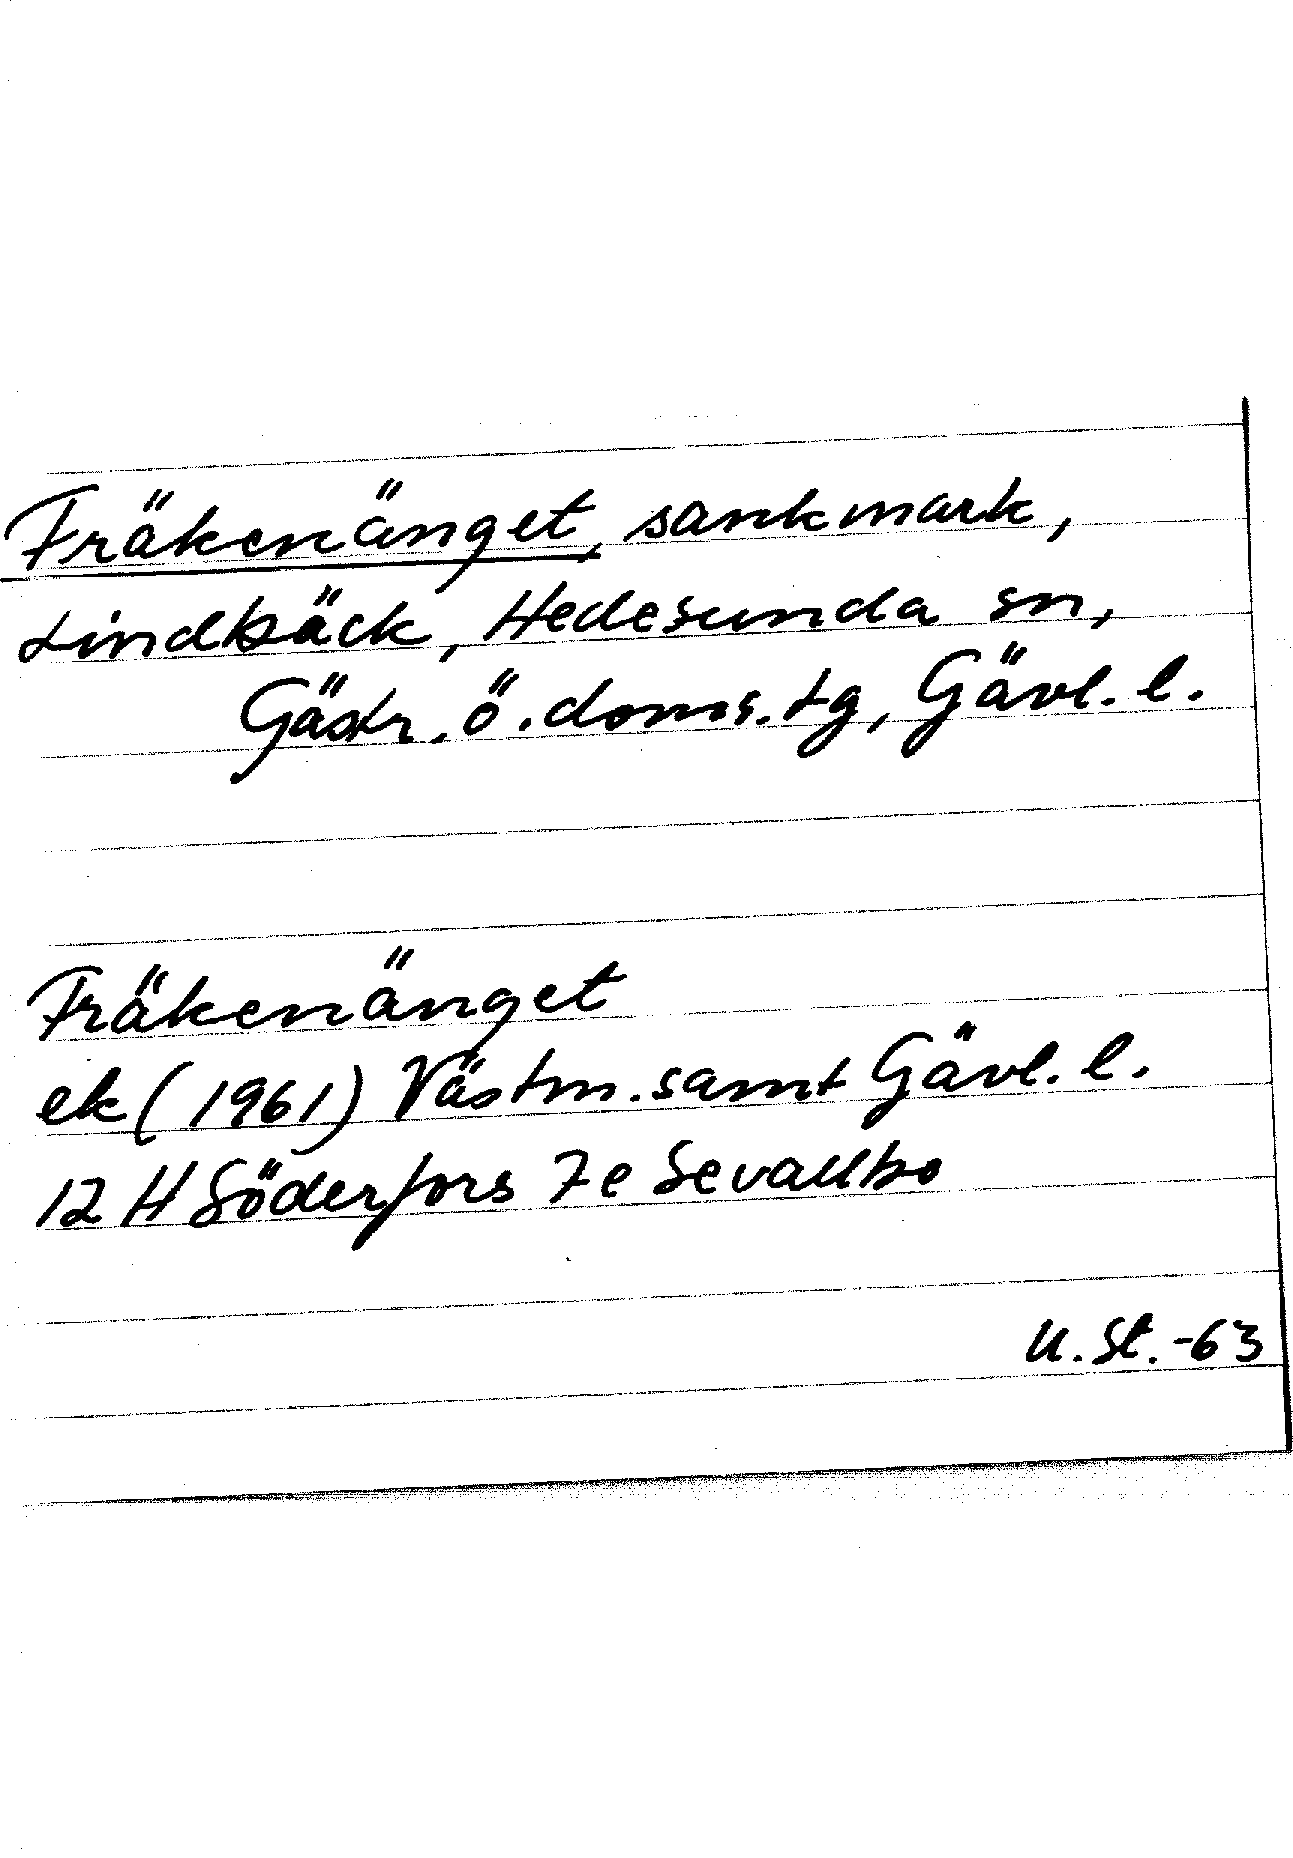 Fräkenänget, sankmark,
Lindbäck, Hedesunda sn,
Gästr. ö. doms. tg, Gävl. l.
Fräkenänget
ek (1961) Västm. samt Gävl. l.
12 H Söderfors 7e Sevallbo
U. St. -63